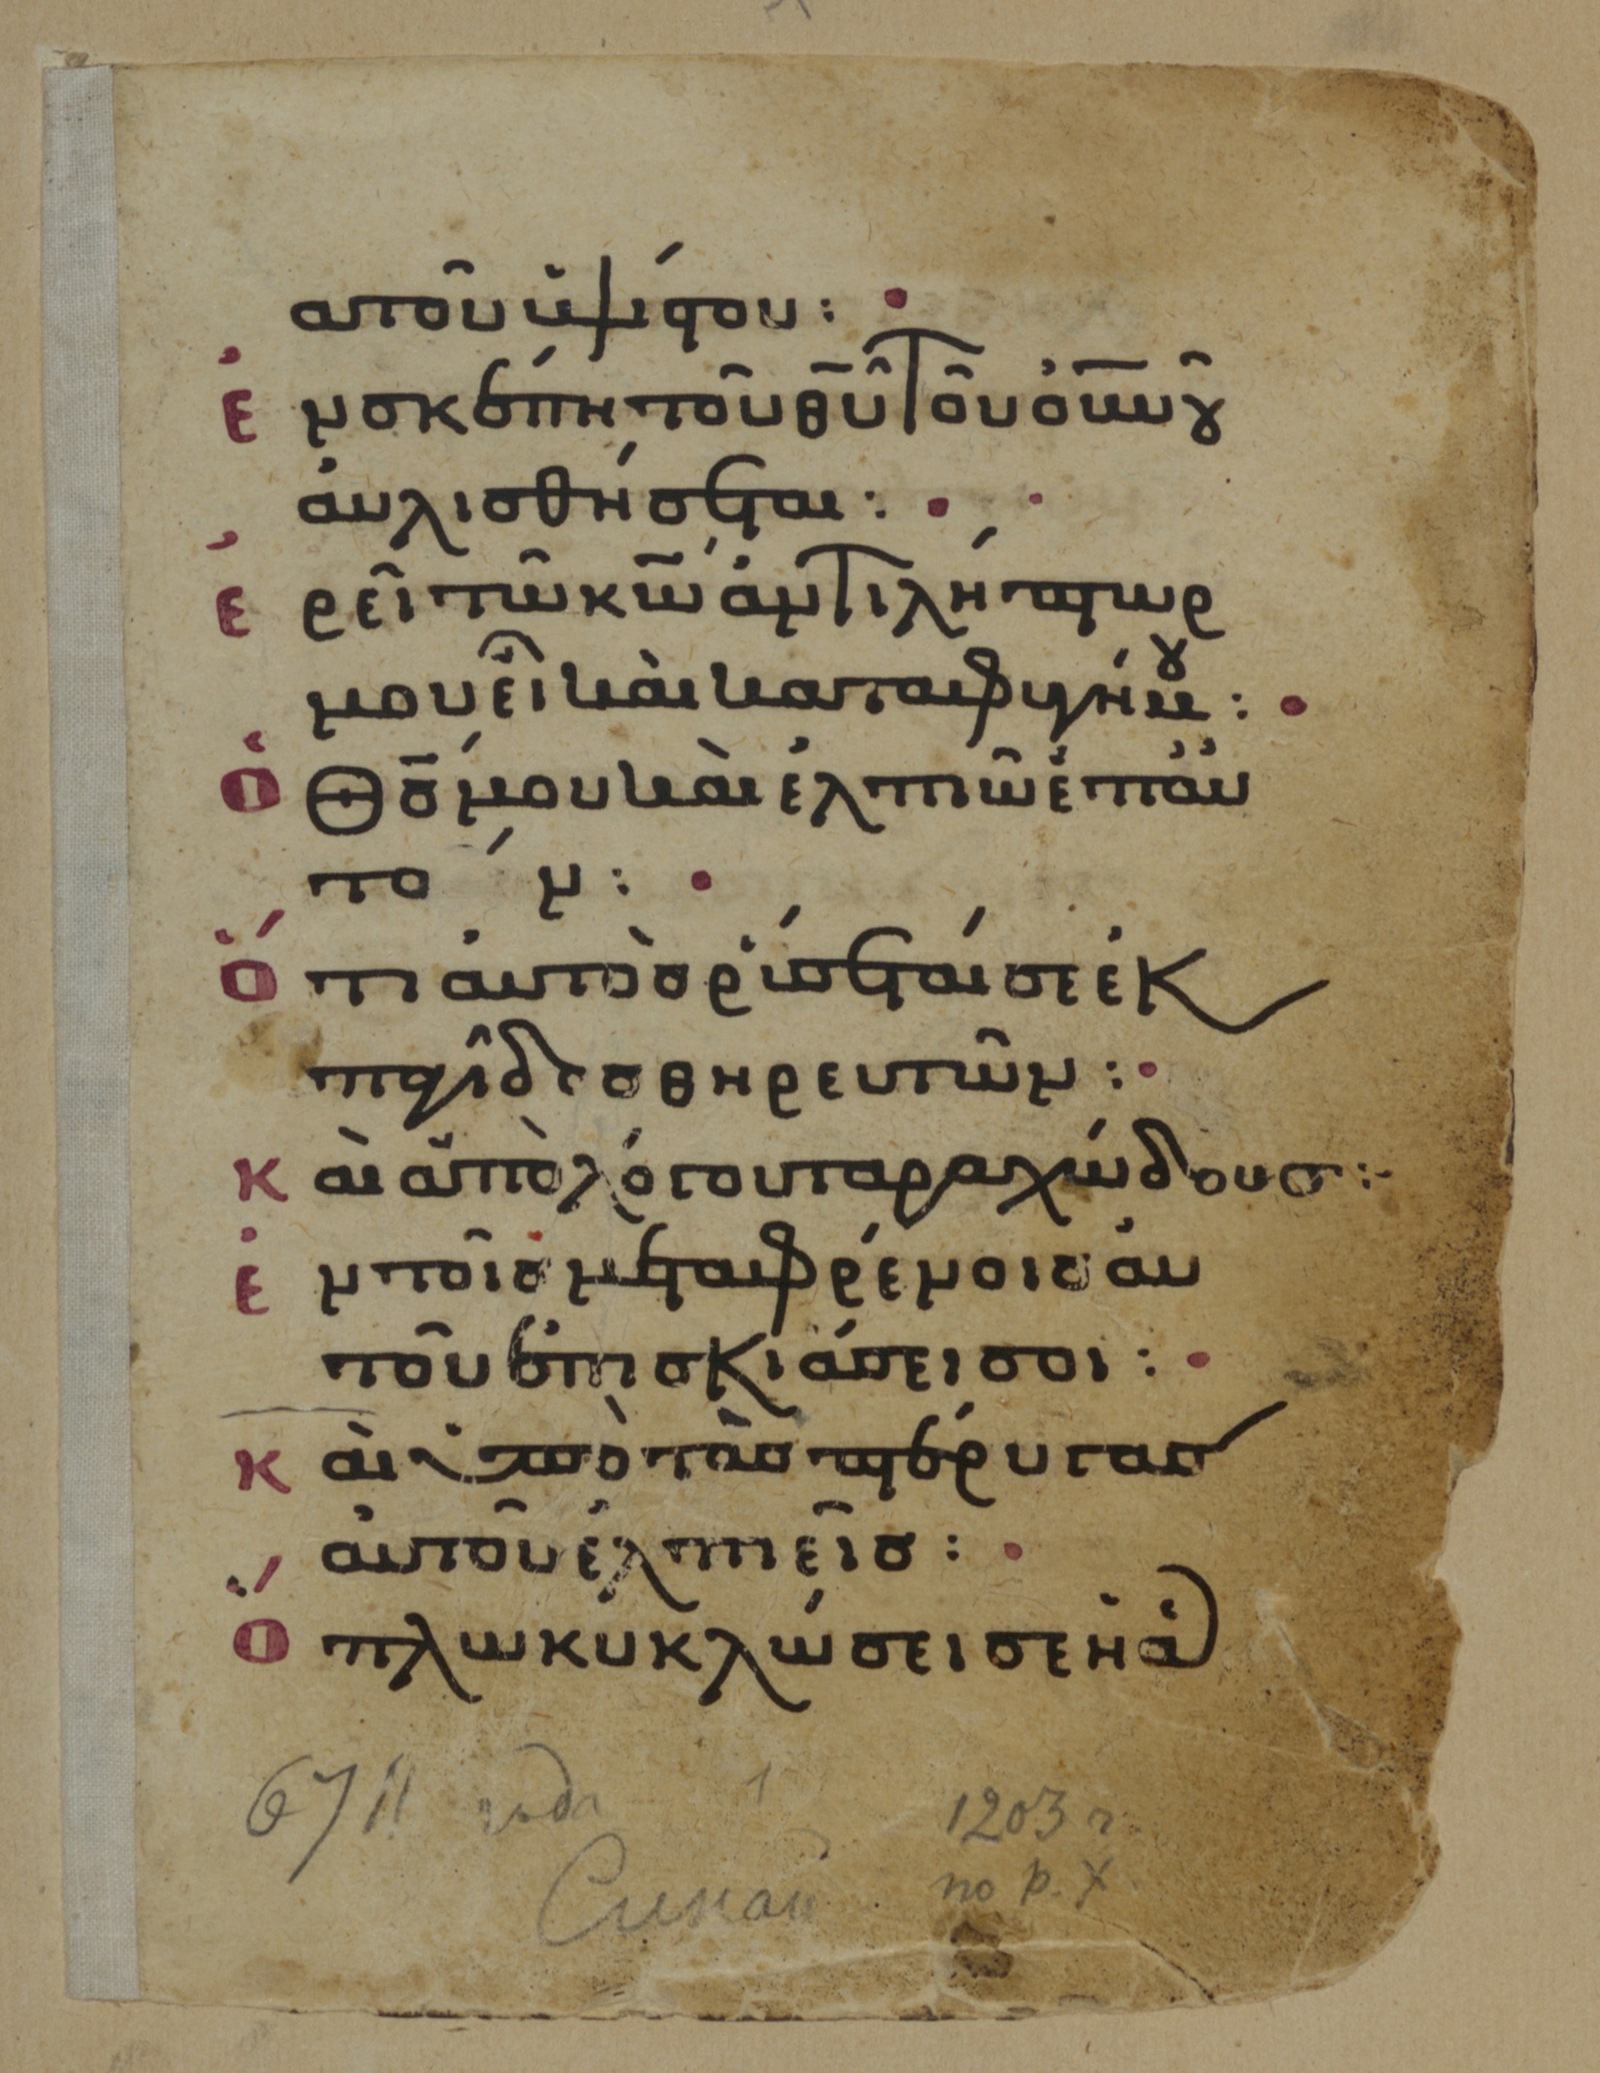 του ὑψίστου: ·
Ἐ ν σκέπῃ τοῦ θ̅υ̅ τοῦ οὐ̅ν̅ου̅
αὐλισθήσεται: ·
Ἐ ρεῖ τῶ κ̅ω̅ ἀντιλήπτωρ
μου εἶ καὶ καταφυγή μου: ·
Ὁ Θ̅ς̅ μου καὶ ἐλπιῶ ἐπ' αὐ
τόν: ·
Ὅ τι αὐτὸς ῥύσεταί σε ἐκ
παγίδος θηρευτῶν: ·
Κ αὶ ἀπὸ λόγου ταραχώδους:
Ἐ ν τοῖς μεταφρένοις αὐ
τοῦ ἐπισκιάσει σοι: ·
Κ αὶ ὑπὸ τὰς πτέρυγας
αὐτοῦ ἐλπιεῖς: ·
Ὅ πλω κυκλώσει σε ἡ ἀ
6711 года 1 1203 г.
Синай по Р. Х